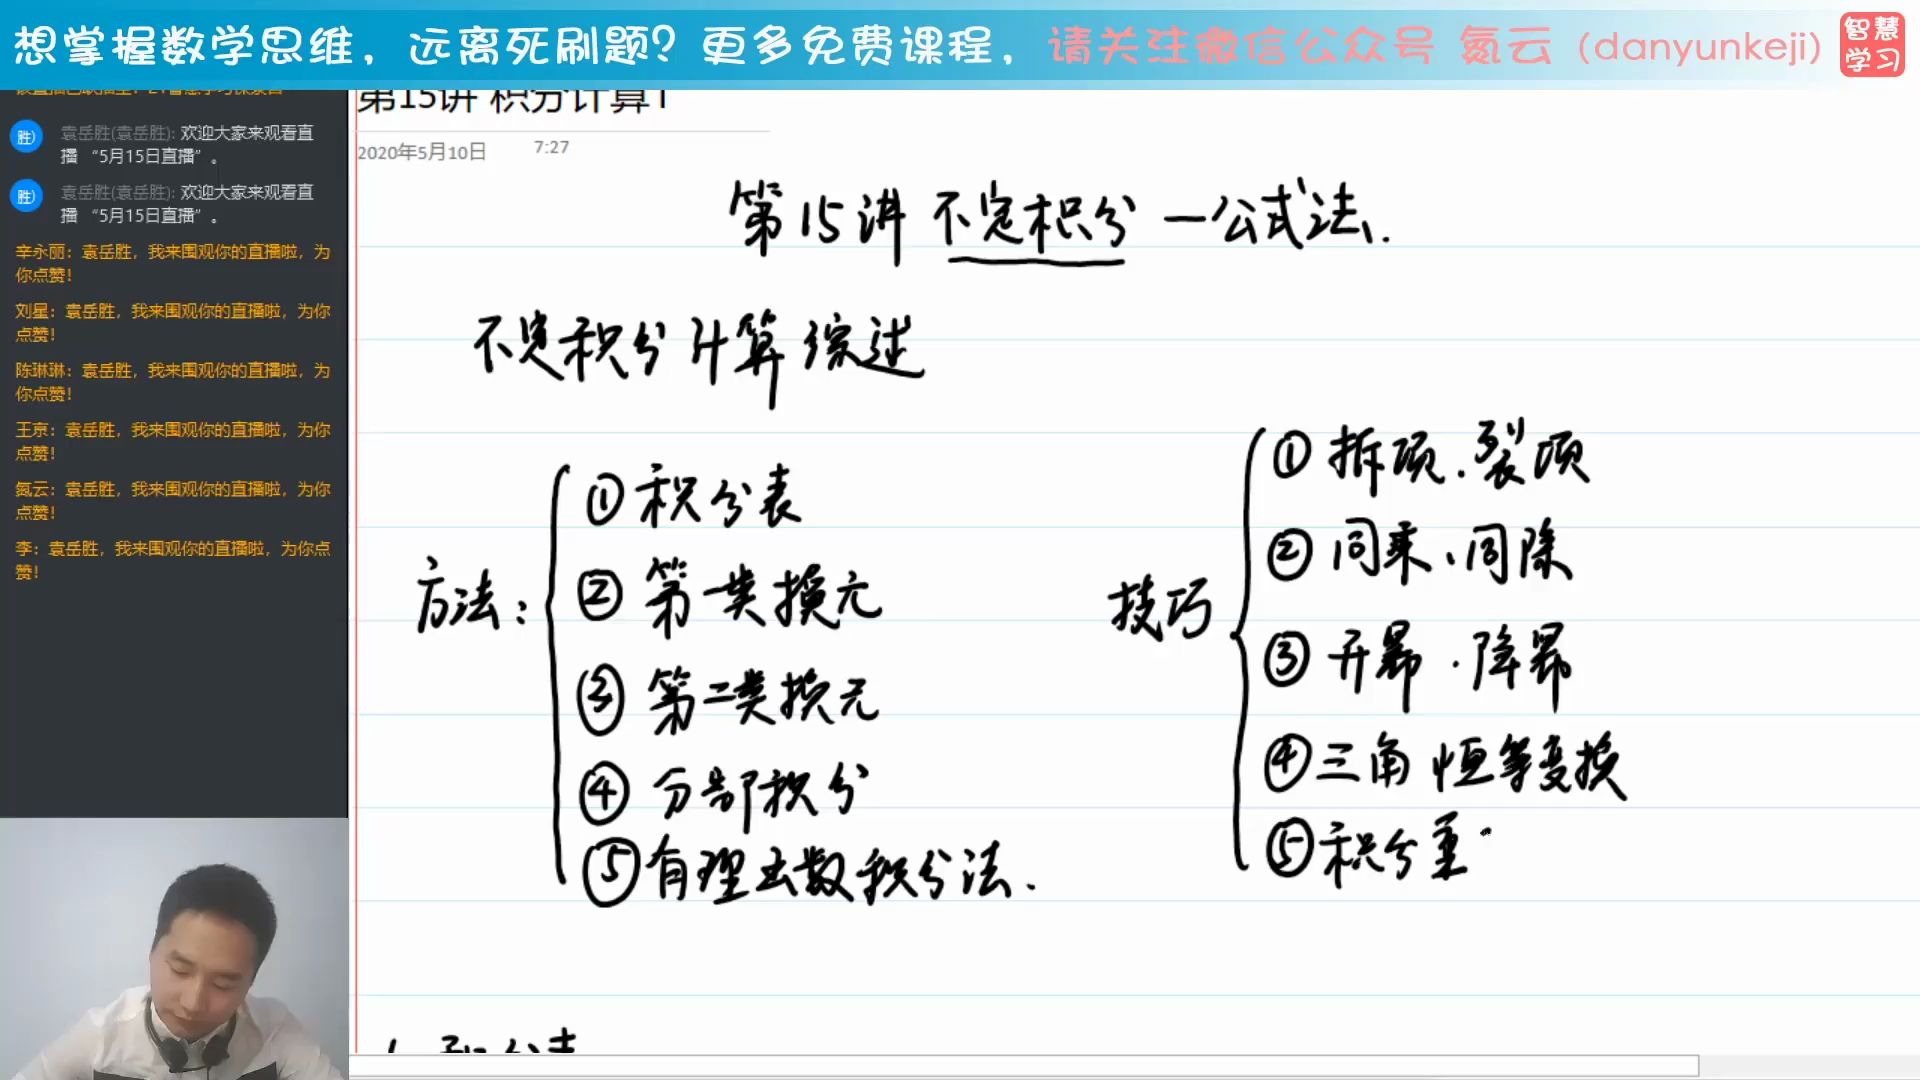 想掌握数学思维，远离死刷题？更多免费课程，请关注微信公众号 氮云（danyunkeji）
智慧
学习
袁岳胜(袁岳胜): 欢迎大家来观看直
播 “5月15日直播”。
胜)
袁岳胜(袁岳胜): 欢迎大家来观看直
播 “5月15日直播”。
胜)
辛永丽：袁岳胜，我来围观你的直播啦，为
你点赞！
刘星：袁岳胜，我来围观你的直播啦，为你
点赞！
陈琳琳：袁岳胜，我来围观你的直播啦，为
你点赞！
王京：袁岳胜，我来围观你的直播啦，为你
点赞！
氮云：袁岳胜，我来围观你的直播啦，为你
点赞！
李：袁岳胜，我来围观你的直播啦，为你点
赞！
第15讲 积分计算1
2020年5月10日 7:27
第15讲 不定积分—公式法.
不定积分计算综述
方法：
①积分表
②第一类换元
③第二类换元
④分部积分
⑤有理函数积分法.
技巧
①拆项.裂项
②同乘、同除
③升幂.降幂
④三角恒等变换
⑤积分重
1. 积分表